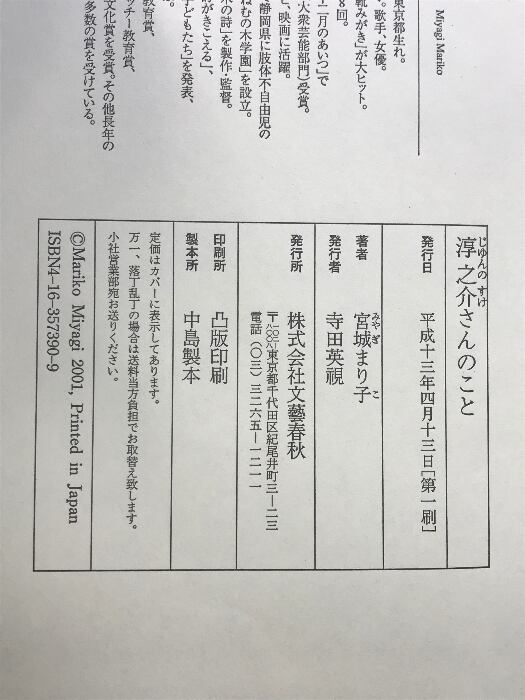 Miyagi Mariko
東京都生れ。
。歌手、女優。
靴みがき」が大ヒット。
8回。
十二月のあいつ」で
大衆芸能部門)受賞。
、映画に活躍。
静岡県に肢体不自由児の
ねむの木学園」を設立。
木の詩」を製作・監督。
詩がきこえる」、
子どもたち」を発表、
教育賞、
ッチー教育賞、
文化賞を受賞。その他長年の
多数の賞を受けている。
じゆんのすけ
淳之介さんのこと
発行日 平成十三年四月十三日[第一刷]
著者 宮城まり子
みやぎ こ
発行者 寺田英視
発行所 株式会社文藝春秋
〒一〇二-八〇〇八 東京都千代田区紀尾井町三-二三
電話(〇三)三二六五-一二一一
印刷所 凸版印刷
製本所 中島製本
定価はカバーに表示してあります。
万一、落丁乱丁の場合は送料当方負担でお取替え致します。
小社営業部宛お送りください。
©Mariko Miyagi 2001, Printed in Japan
ISBN4-16-357390-9